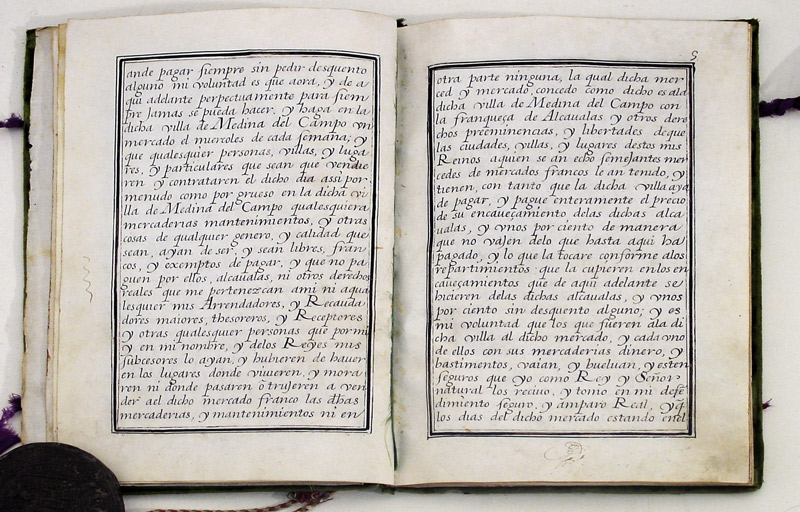 ande pagar siempre sin pedir desquento
alguno mi voluntad es que aora, y de a
qui adelante perpectuamente para siem
pr Jamas se pueda hacer, y haga en la
dicha villa de Medina del Campo vn
mercado el miercoles de cada semana; y
que qualesquier personas, villas, y luga
res, y particulares que sean que vendie
ren y contrataren el dicho dia assi por
menudo como por grueso en la dicha vi
lla de Medina del Campo qualesquiera
mercaderias mantenimientos, y otras
cosas de qualquier genero, y calidad que
sean, ayan de ser, y sean libres, fran
cos, y exemptos de pagar, y que no pa
guen por ellos, alcaualas, ni otros derechos
reales que me pertenezcan ami ni aqua
lesquier mis Arrendadores, y Recauda
dores maiores, thesoreros, y Receptores
y otras qualesquier personas que por mi
y en mi nombre, y delos Reyes mis
subcesores lo ayan, y hubieren de hauer
en los lugares donde viuieren, y mora
ren ni donde pasaren ò trujeren a ven
der ael dicho mercado franco las dhas
mercaderias, y mantenimientos ni en
5
otra parte ninguna, la qual dicha mer
ced y mercado concedo como dicho es ala
dicha villa de Medina del Campo con
la franqueça de Alcaualas y otros dere
chos preeminencias, y libertades de que
las ciudades, villas, y lugares destos mis
Reinos aquien se an echo semejantes mer
cedes de mercados francos le an tenido, y
tienen, con tanto que la dicha villa aya
de pagar, y pague enteramente el precio
de su encaueçamiento delas dichas alca
ualas, y vnos por ciento de manera
que no vajen delo que hasta aqui ha
pagado, y lo que la tocare conforme alos
repartimientos que la cupieren en los en
caueçamientos que de aqui adelante se
hicieren delas dichas alcaualas, y vnos
por ciento sin desquento alguno; y es
mi voluntad que los que fueren ala di
cha villa al dicho mercado, y cada vno
de ellos con sus mercaderias dinero, y
bastimentos, vaian, y bueluan, y esten
seguros que yo como Rey y Señor
natural los reciuo, y tomo en mi defen
dimiento seguro, y amparo Real, y q̃
los dias del dicho mercado estando enel